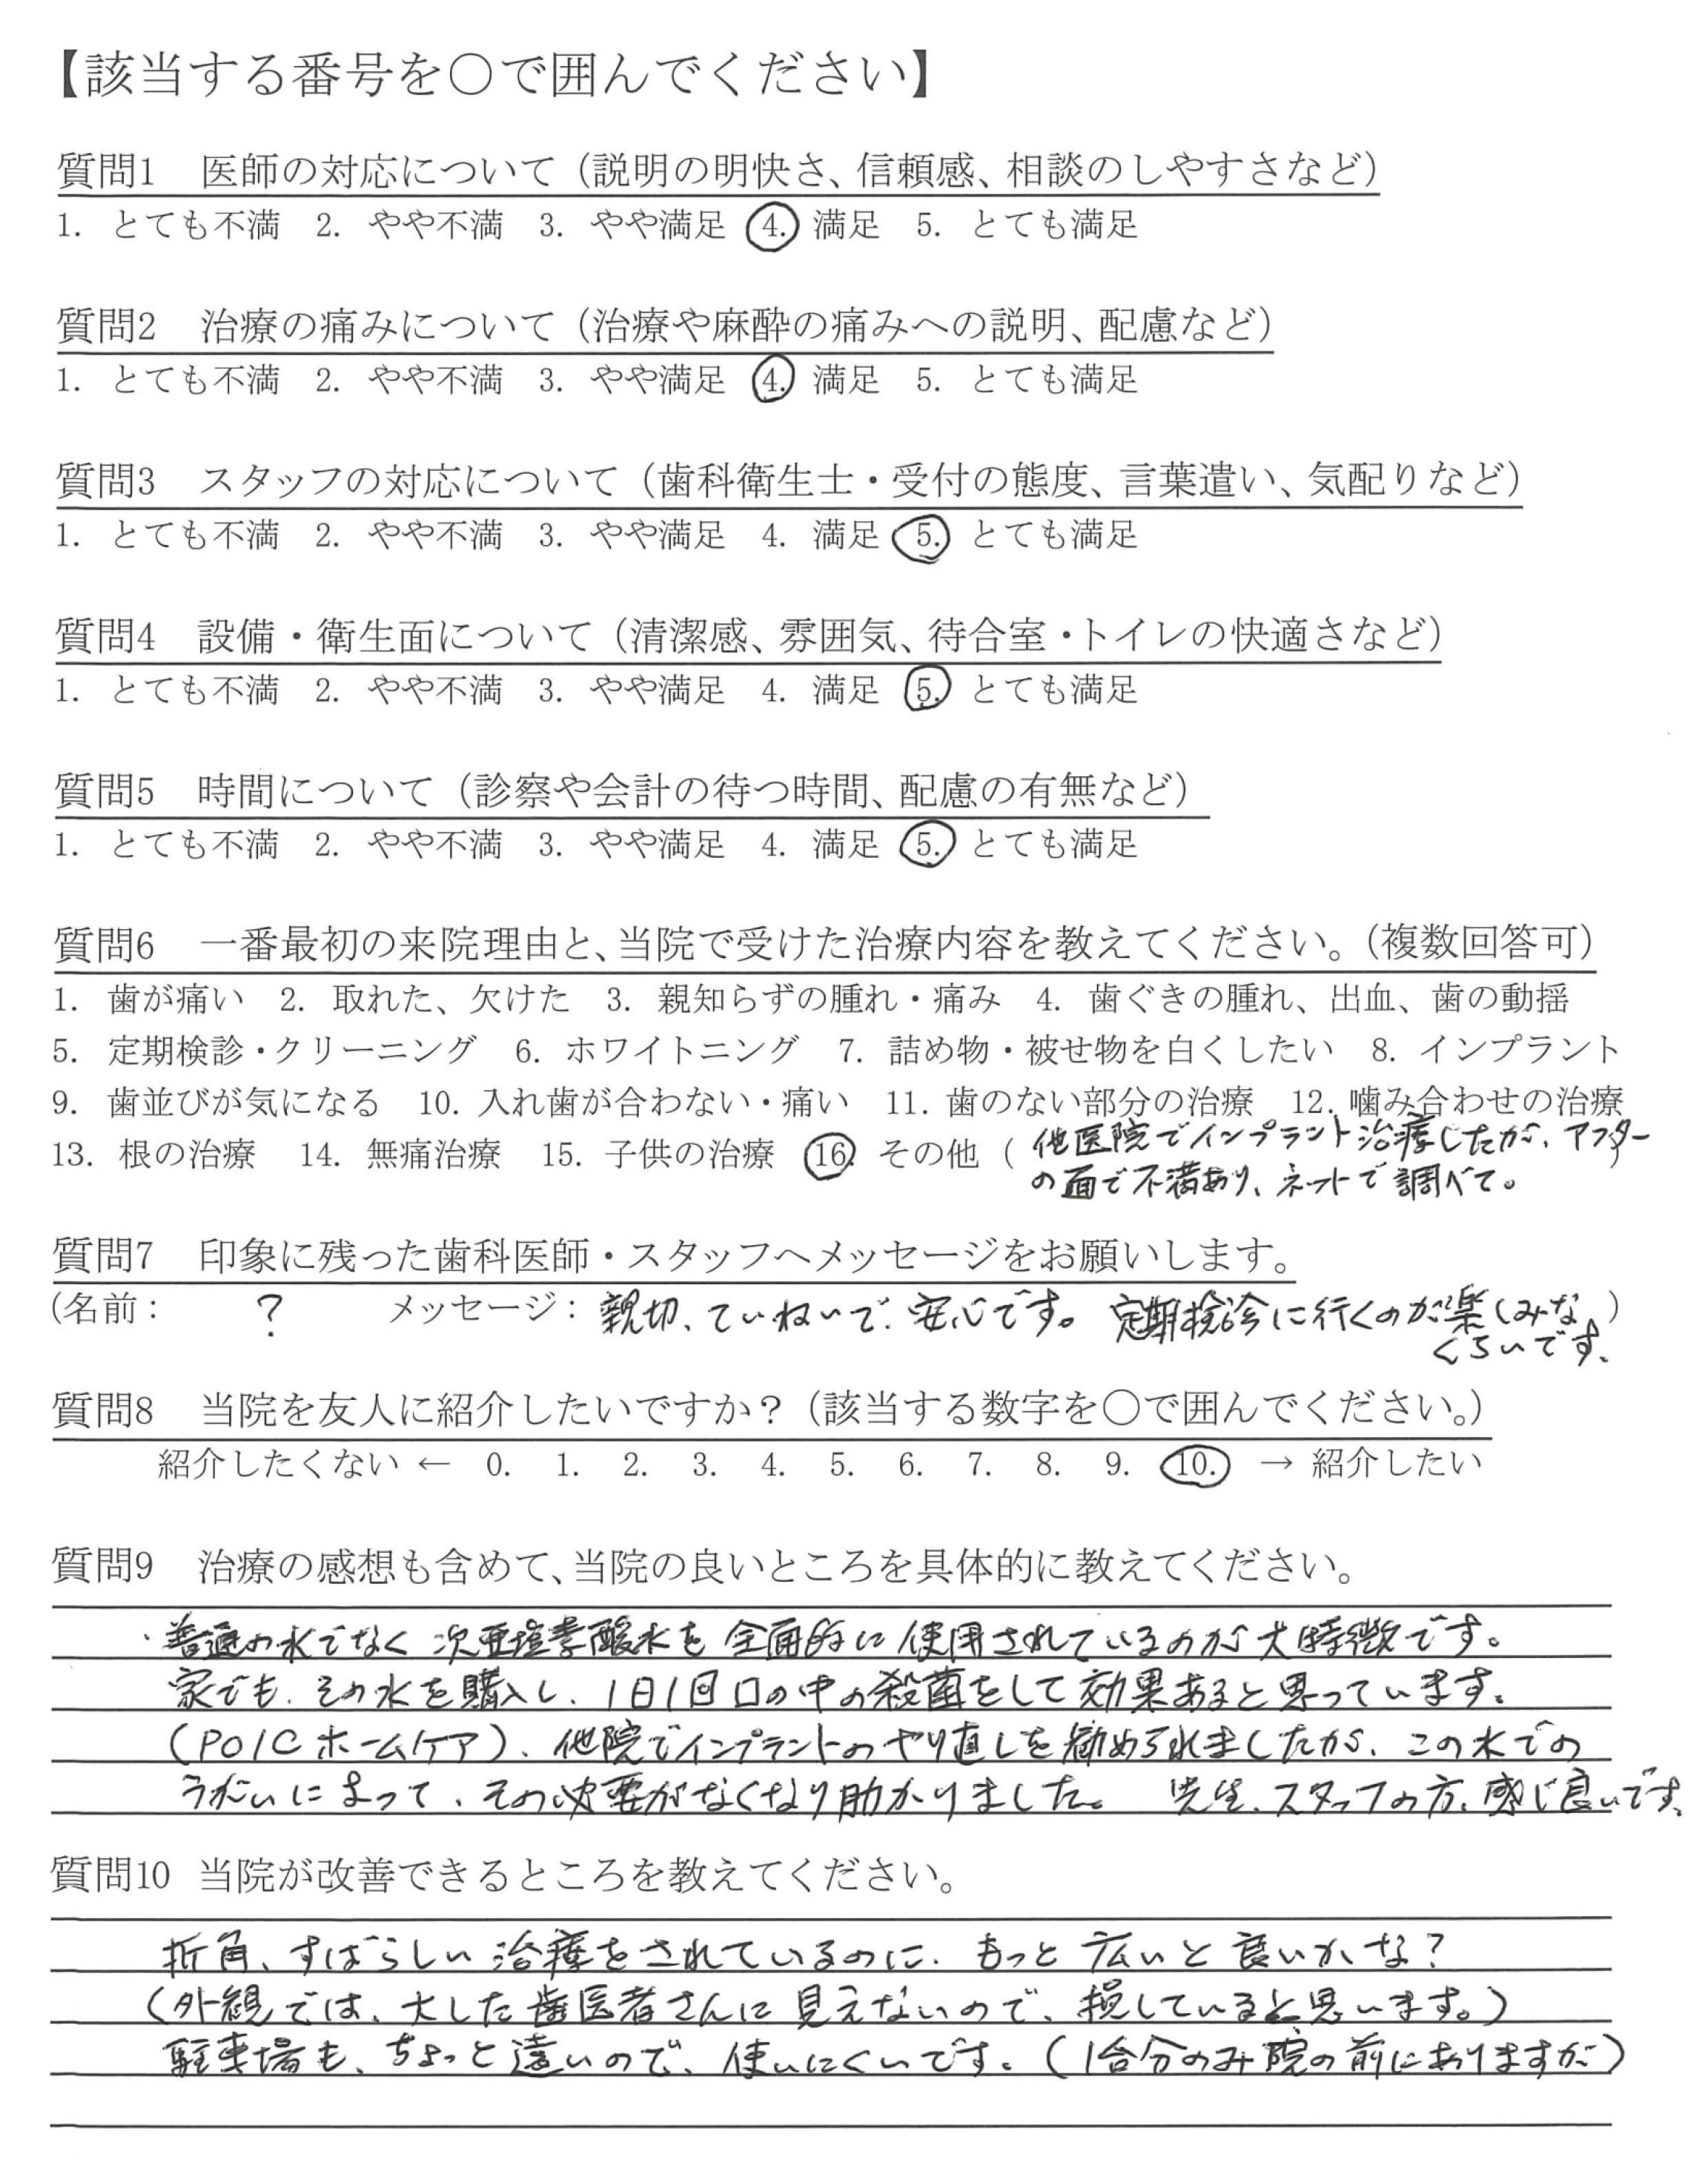 【該当する番号を〇で囲んでください】
質問1　医師の対応について（説明の明快さ、信頼感、相談のしやすさなど）
1. とても不満　2. やや不満　3. やや満足　4. 満足　5. とても満足
質問2　治療の痛みについて（治療や麻酔の痛みへの説明、配慮など）
1. とても不満　2. やや不満　3. やや満足　4. 満足　5. とても満足
質問3　スタッフの対応について（歯科衛生士・受付の態度、言葉遣い、気配りなど）
1. とても不満　2. やや不満　3. やや満足　4. 満足　5. とても満足
質問4　設備・衛生面について（清潔感、雰囲気、待合室・トイレの快適さなど）
1. とても不満　2. やや不満　3. やや満足　4. 満足　5. とても満足
質問5　時間について（診察や会計の待つ時間、配慮の有無など）
1. とても不満　2. やや不満　3. やや満足　4. 満足　5. とても満足
質問6　一番最初の来院理由と、当院で受けた治療内容を教えてください。（複数回答可）
1. 歯が痛い　2. 取れた、欠けた　3. 親知らずの腫れ・痛み　4. 歯ぐきの腫れ、出血、歯の動揺
5. 定期検診・クリーニング　6. ホワイトニング　7. 詰め物・被せ物を白くしたい　8. インプラント
9. 歯並びが気になる　10. 入れ歯が合わない・痛い　11. 歯のない部分の治療　12. 噛み合わせの治療
13. 根の治療　14. 無痛治療　15. 子供の治療　16. その他（他医院でインプラント治療したが、アフター
の面で不満あり、ネットで調べて。）
質問7　印象に残った歯科医師・スタッフへメッセージをお願いします。
（名前：　？　メッセージ：親切、ていねいで、安心です。定期検診に行くのが楽しみな
くらいです。）
質問8　当院を友人に紹介したいですか？（該当する数字を〇で囲んでください。）
紹介したくない ← 0. 1. 2. 3. 4. 5. 6. 7. 8. 9. 10. → 紹介したい
質問9　治療の感想も含めて、当院の良いところを具体的に教えてください。
・普通の水でなく次亜塩素酸水を全面的に使用されているのが大特徴です。
家でも、その水を購入し、1日1回口の中の殺菌をして効果あると思っています。
（POICホームケア）、他院でインプラントのやり直しを勧められましたが、この水での
うがいによって、その必要がなくなり助かりました。先生、スタッフの方、感じ良いです。
質問10 当院が改善できるところを教えてください。
折角、すばらしい治療をされているのに、もっと広いと良いかな？
（外観では、大した歯医者さんに見えないので、損していると思います。）
駐車場も、ちょっと遠いので、使いにくいです。（1台分のみ院の前にありますが）